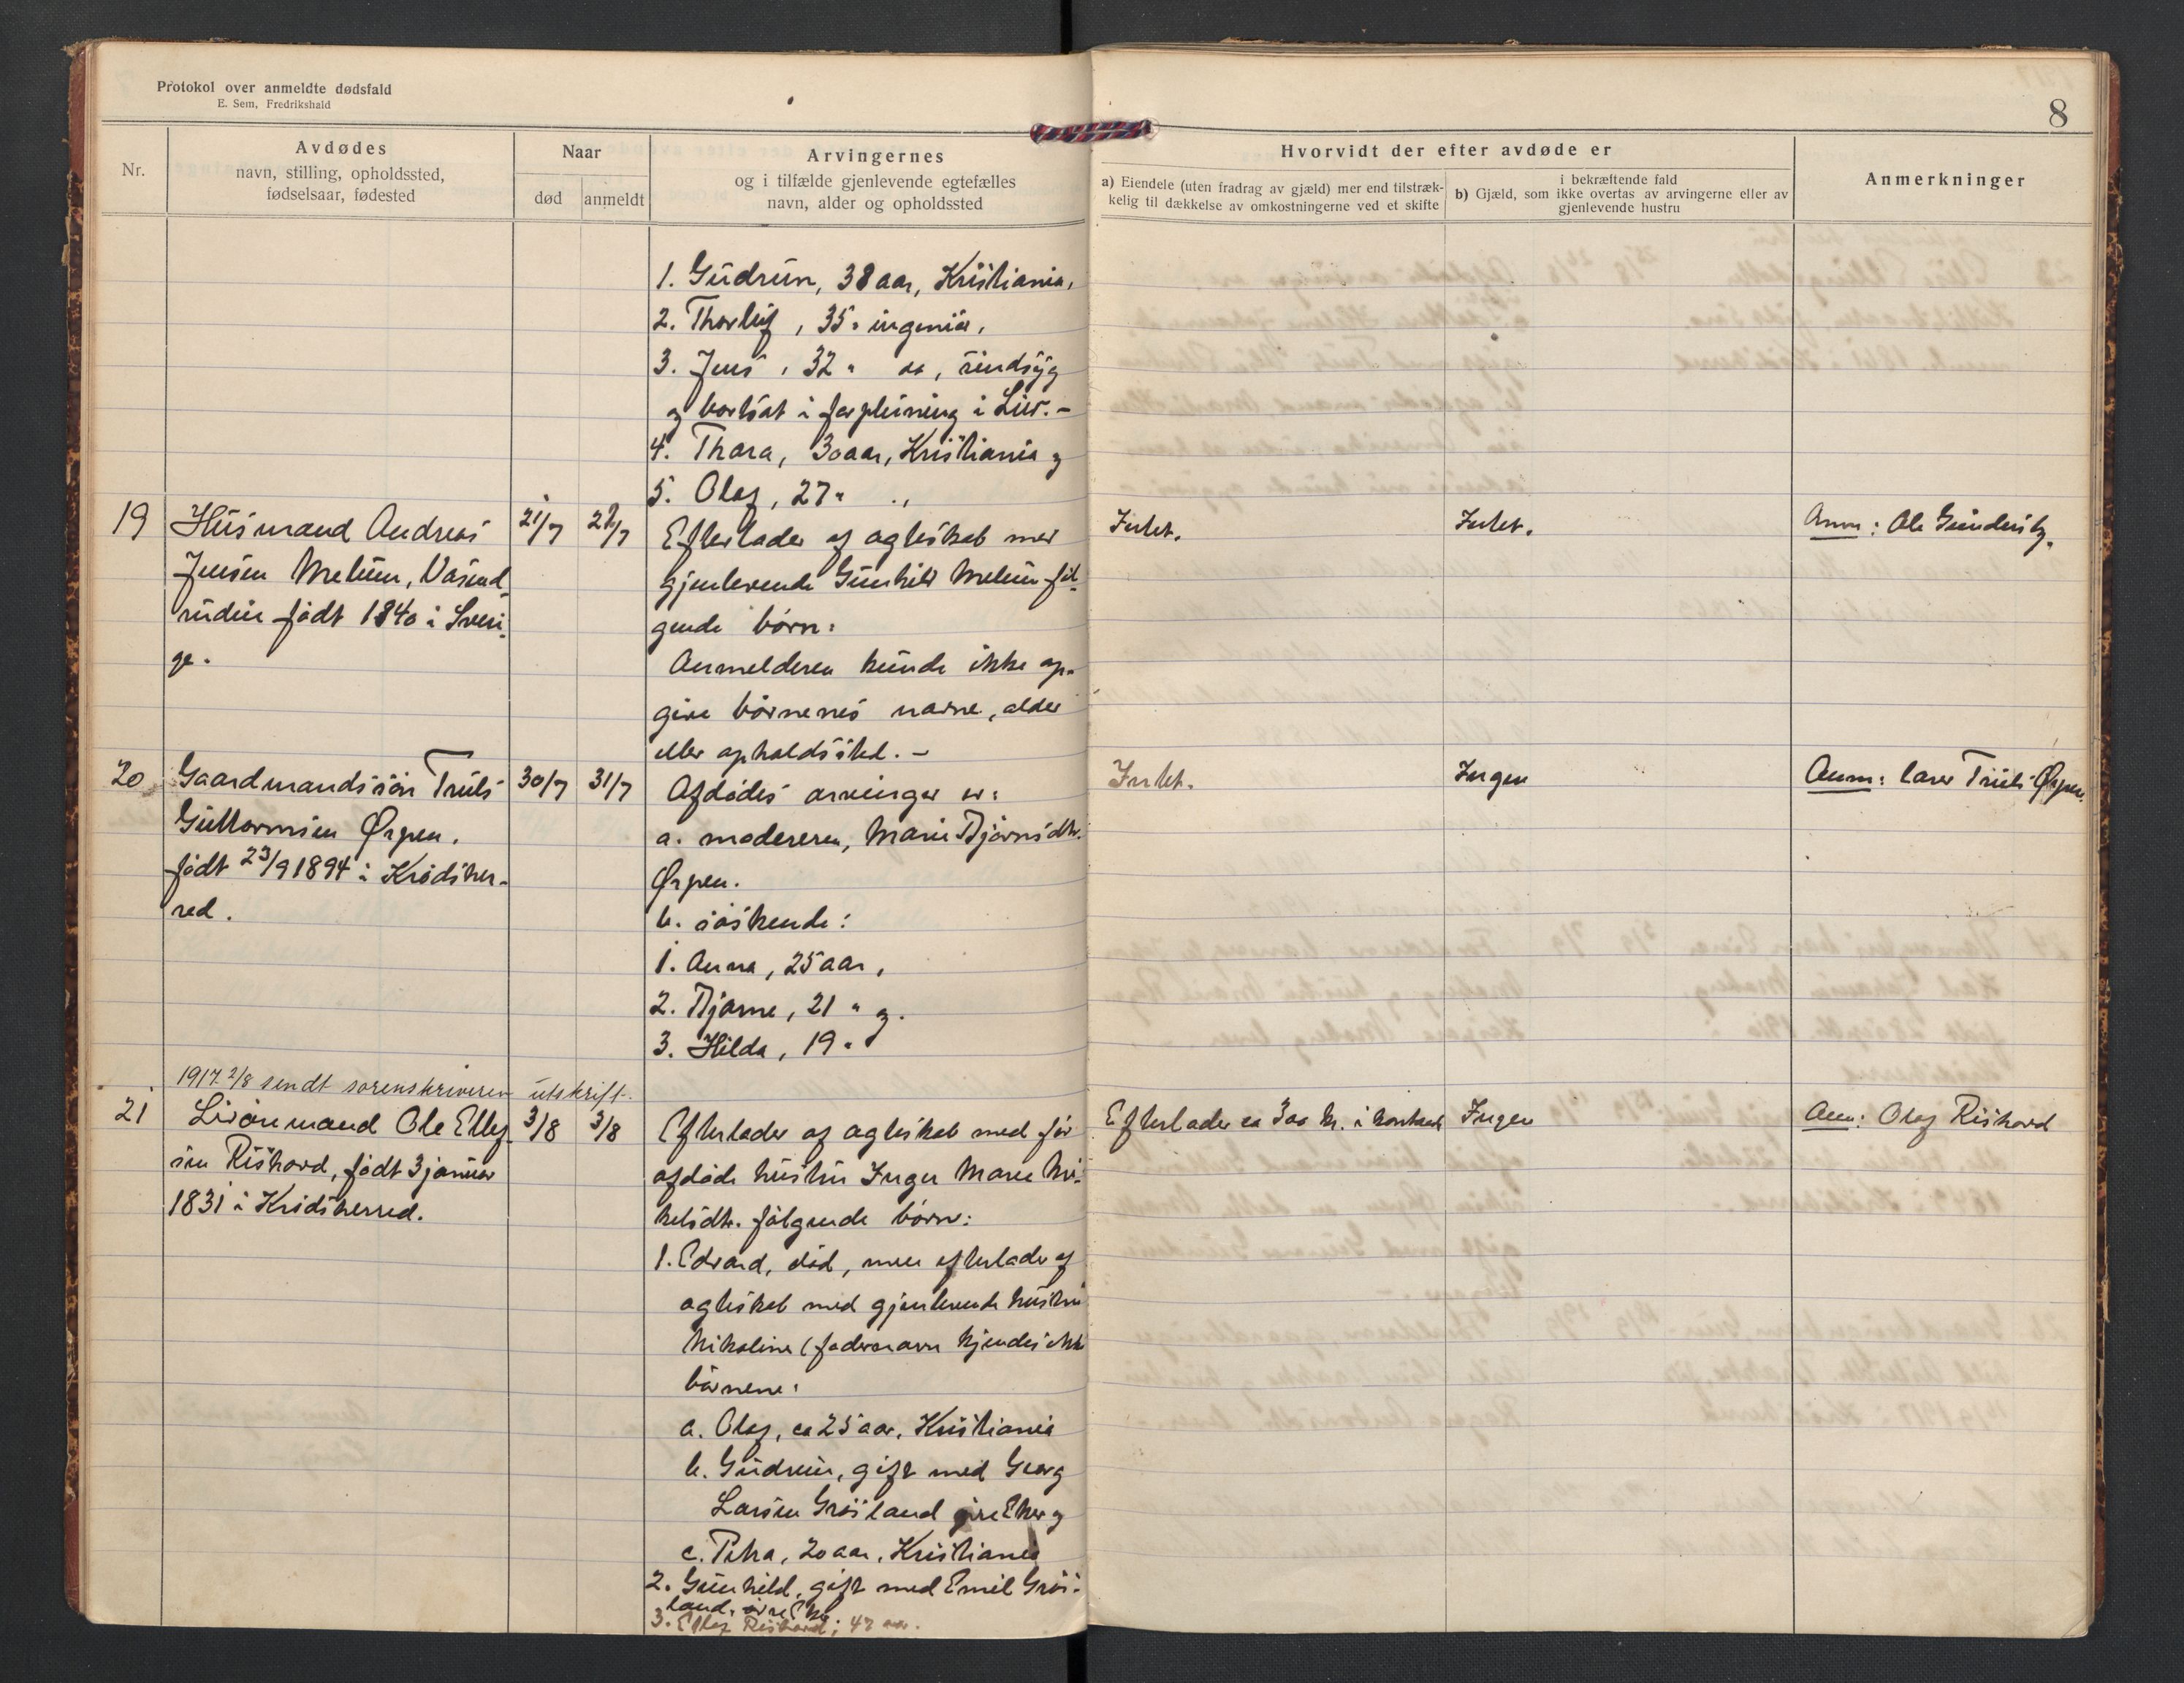 Protokol over anmeldte dødsfald
E. Sem, Fredrikshald
8
Nr.
Avdødes
navn, stilling, opholdssted,
fødselsaar, fødested
Naar
død
anmeldt
Arvingernes
og i tilfælde gjenlevende egtefælles
navn, alder og opholdssted
Hvorvidt der efter avdøde er
a) Eiendele (uten fradrag av gjæld) mer end tilstræk-
kelig til dækkelse av omkostningerne ved et skifte
i bekræftende fald
b) Gjæld, som ikke overtas av arvingerne eller av
gjenlevende hustru
Anmerkninger
1. Gudrun, 38 aar, Kristiania,
2. Thorleif, 35 " ingeniør,
3. Jens, 32 " sindsyg
og bortsat i forpleining i Lier. -
4. Thora, 30 aar, Kristiania og
5. Olaf, 27 "
19 Husmand Andreas
Jensen Melum, Vasend-
ruden født 1840 i Sveri-
ge.
21/7
Efterlader af ægteskab med
gjenlevende Gunhild Melumføl-
gende børn:
Anmelderen kunde ikke op-
give børnenes navne, alder
eller opholdssted. -
Intet.
Intet.
Anm: Ole Gunders
20 Gaardmandssøn Truls
Guttormsen Ørpen.
født 23/9 1894 i Krødsher-
red.
30/7
31/7
Afdødes arvinger er:
a. moderen, Marie Bjørnsdtr.
Ørpen.
b. søskende:
1. Anna, 25 aar,
2. Bjarne, 21 " og.
3. Hilda, 19 "
Intet.
Ingen
Anm: Truls Ørpen.
1917. 2/8 sendt sorenskriveren utskrift.
21 Livøremand Ole Ellef-
sen Rishovd, født 3 januar
1831 i Krødsherred.
3/8
3/8
Efterlader af ægteskab med før
afdøde hustru Inger Marie Mi-
kelsdtr. følgende børn:
1. Edvard, død, men efterlader af
ægteskab med gjenlevende hustru
Nikoline (fadernavn kjendes ikke
børnene:
a. Olaf, ca 25 aar, Kristiania
b. Gudrun, gift med Georg
Larsen Grøsland øvre Eker og
c. Petra, 20 aar, Kristiania
2. Gunhild, gift med Emil Grøs-
land, øvre Eker
3. Ellef Rishovd, 47 aar.
Efterlader ca 300 kr. i kontant
Ingen
Anm: Olaf Rishovd